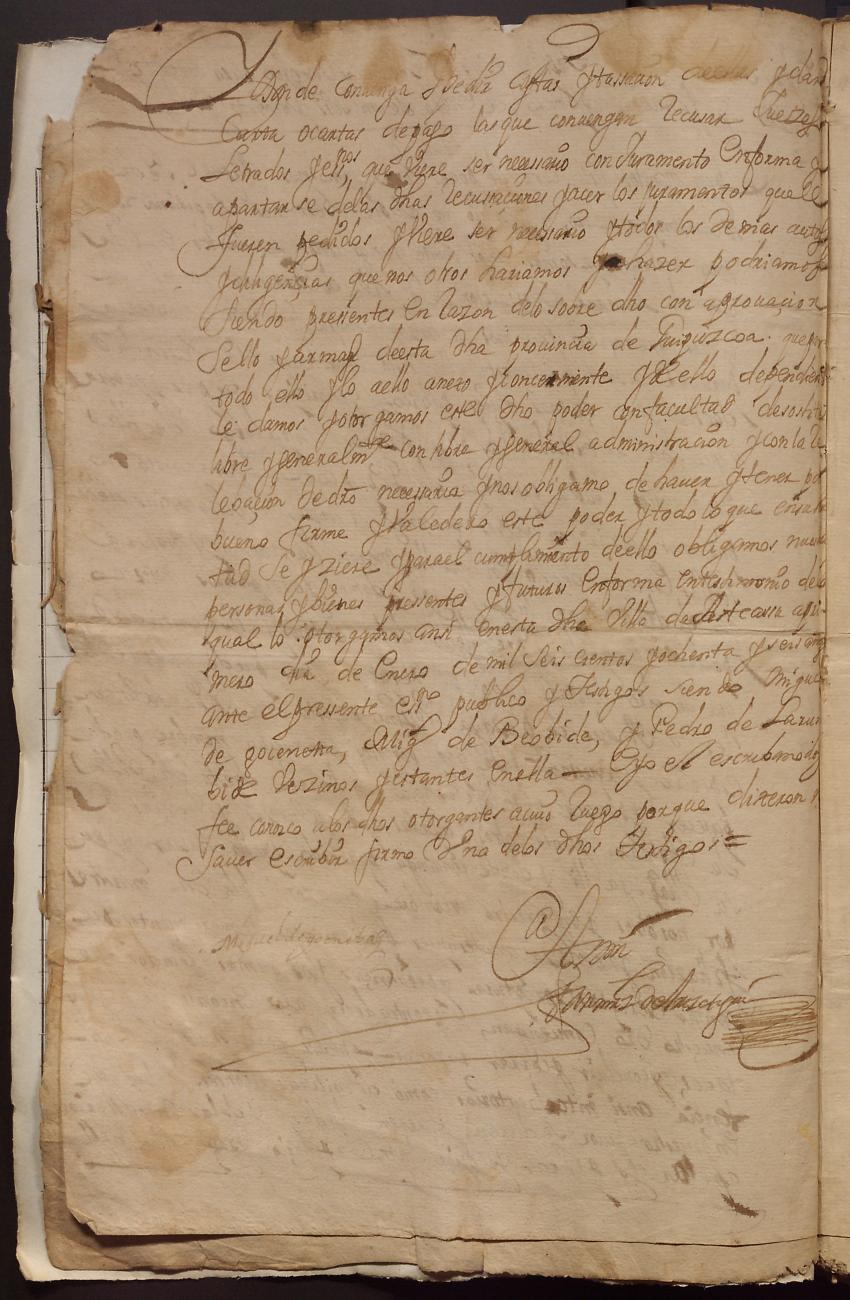 Donde convenga Pedir costas y tassacion deellas y dar
Carta o cartas depago las que convengan Recusar Juezes
Letrados y essnos que Viere ser necessario con Juramento Enforma y
apartarse delas dhas Recusaciones jacer los juramentos que le
fueren pedidos y Viere ser necessario y todos los demas autos
y diligençias que nos otros hariamos y hazer podriamos
Siendo pressentes En Razon delo sobre dho con aprovaçion
Sello y armas deesta dha provincia de Guipuzcoa que por
todo ello y lo aello anexo y conzerniente y de ello dependiente
le damos y otorgamos este dho poder con facultad desostitu
libre y generalmte con libre y general administraçion y con la Re
lebaçion de dro necessaria y nos obligamo de haver y tener por
bueno firme y Valedero este poder y todo lo que en su vir
tud Se yziere y para el cumplimiento deello obligamos nuestras
personas y bienes pressentes y futuros Enforma Entestimonio delo
qual lo otorgamos ansi enesta dha Villa de a pri
mero dia de Enero de mil Seis cientos y ochenta y seis años
ante el pressente essno publico y testigos siendo Miguel
de goicnetta, Migl de Beobide, y Pedro de Larum
bide Vezinos y estantes Enella — E yo el escribano doy
fee conozco a los dhos otorgantes acuio Ruego porque dixeron no
Saver escribir firmo Vno delos dhos testigos =
Miguel de
Ante mi